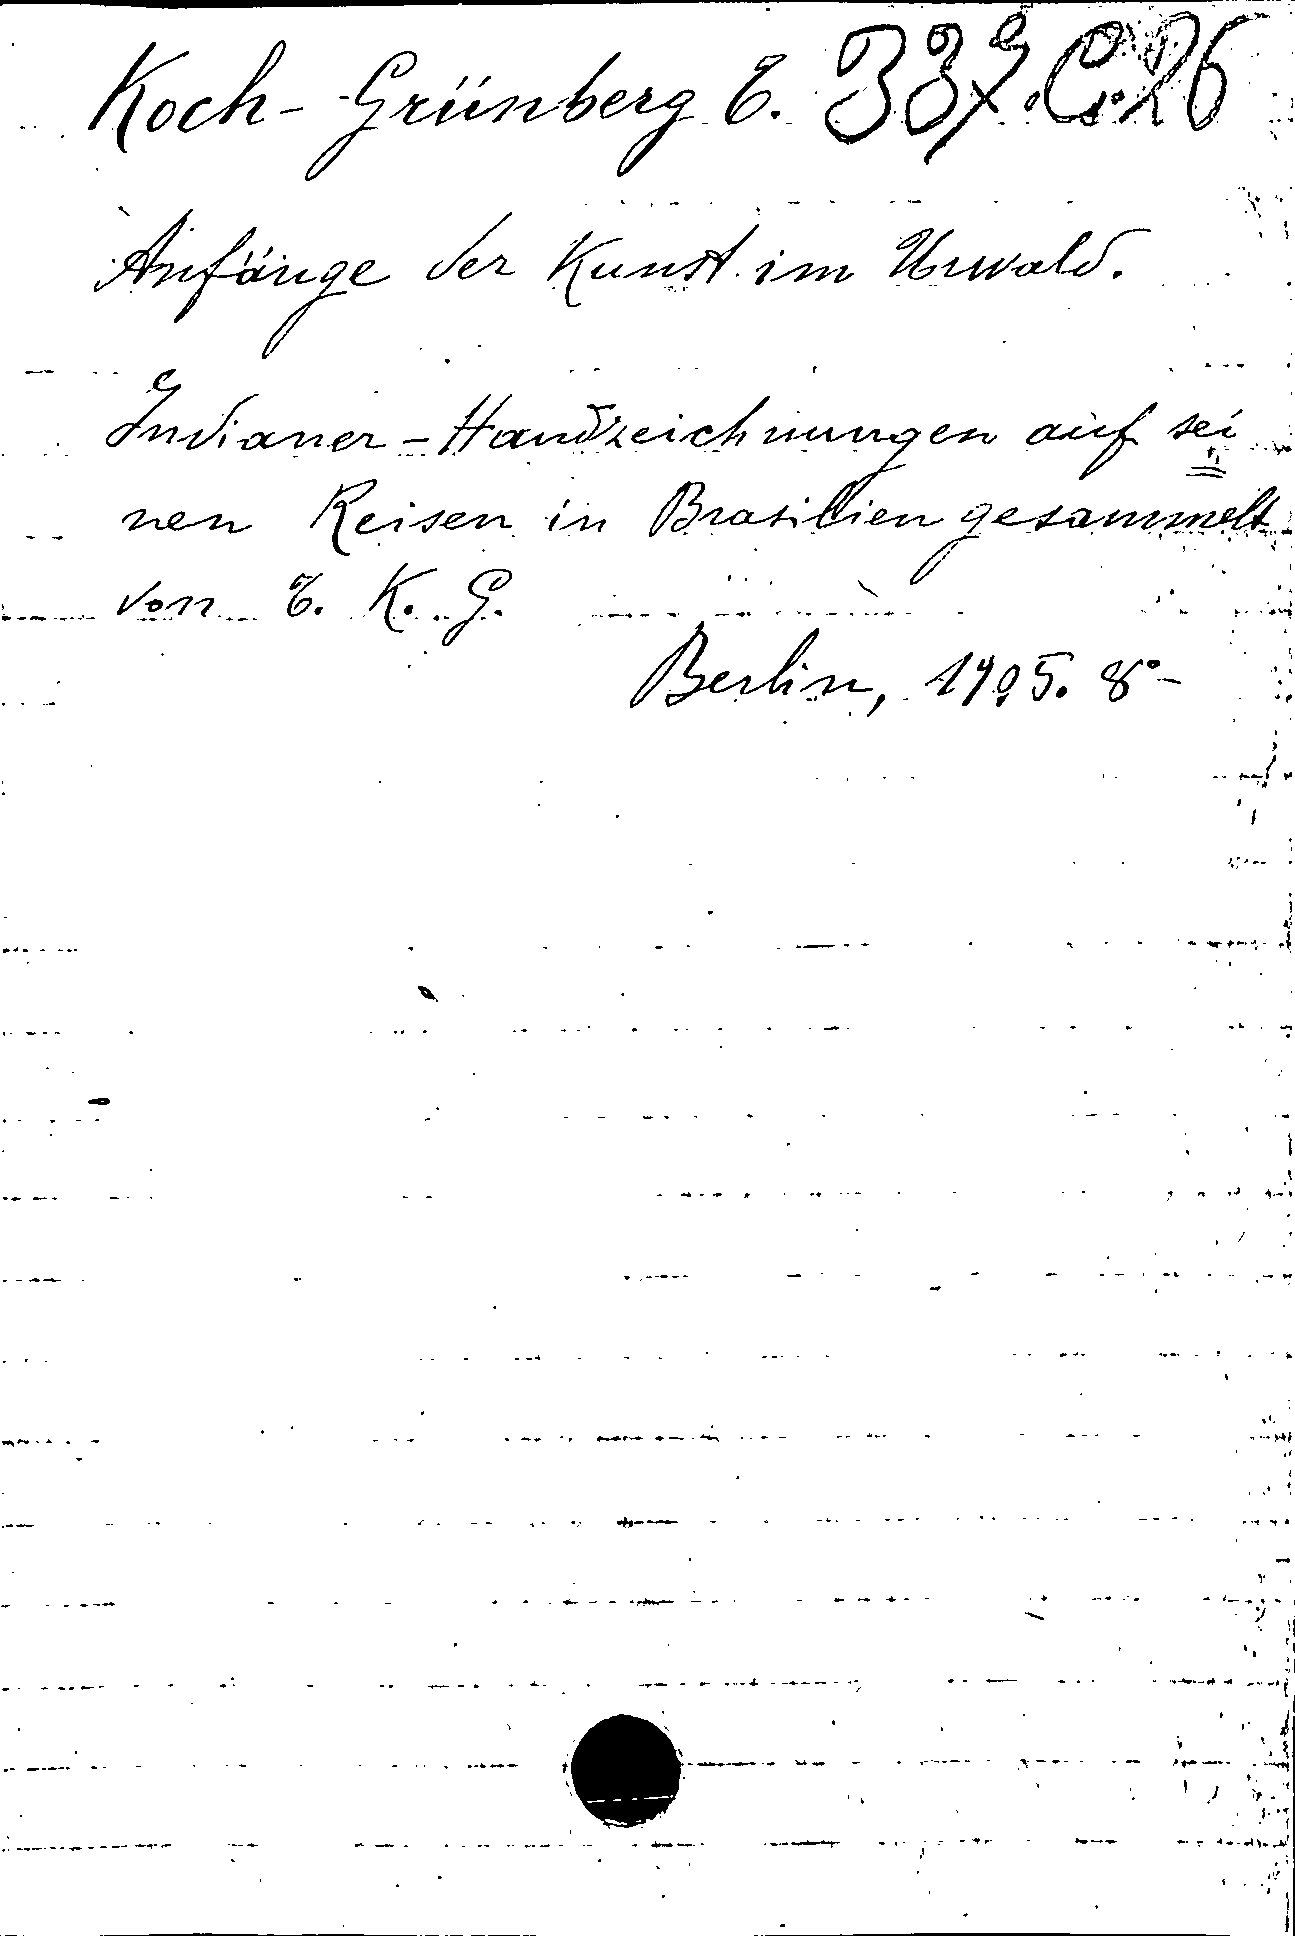 Koch-Grünberg T. 337.C.26
Anfänge der Kunst im Urwald.
Indianer-Handzeichnungen auf sei
nen Reisen in Brasilien gesammelt
von T. K. G.
Berlin, 1905. 8°-